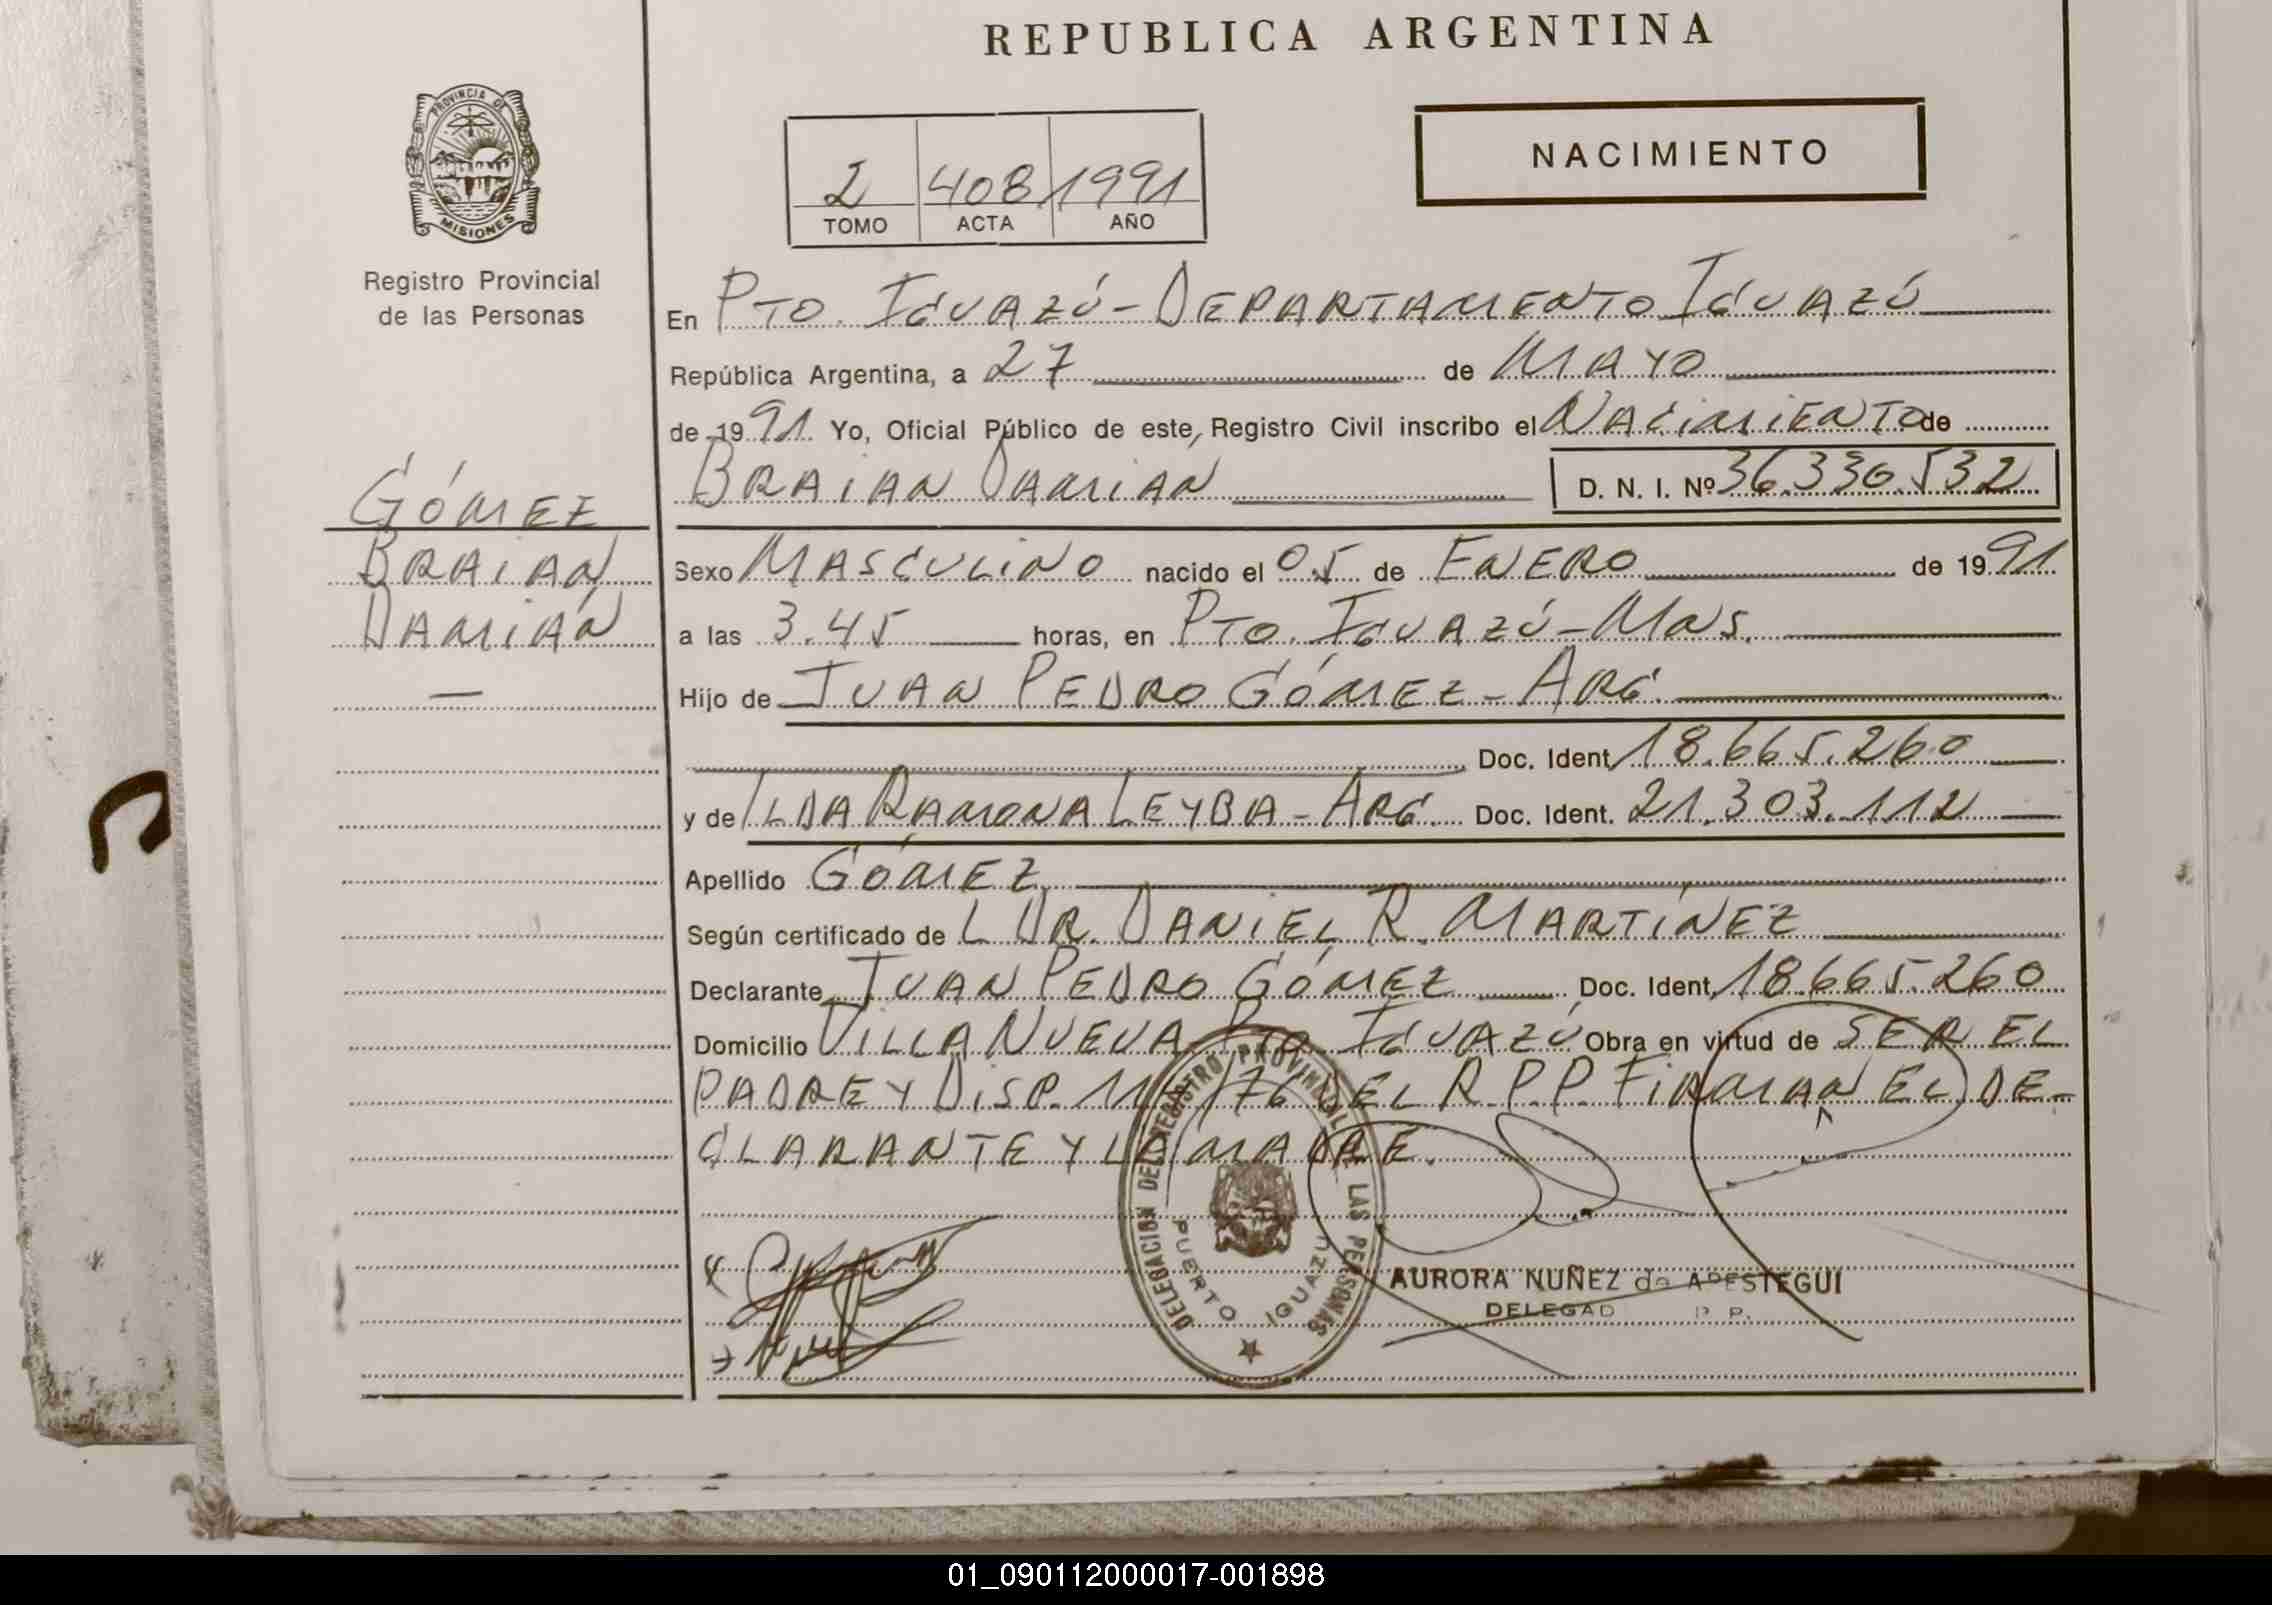 REPUBLICA ARGENTINA
PROVINCIA DE
MISIONES
Registro Provincial
de las Personas
NACIMIENTO
2 408 1991
TOMO ACTA AÑO
En PTO. IGUAZÚ - DEPARTAMENTO IGUAZÚ
República Argentina, a 27 de MAYO
de 1991 Yo, Oficial Público de este, Registro Civil inscribo el NACIMIENTO de
BRAIAN DAMIAN D. N. I. Nº 36.330.532
GÓMEZ
BRAIAN
DAMIÁN
Sexo MASCULINO nacido el 05 de ENERO de 1991
a las 3.45 horas, en PTO. IGUAZÚ - MNS.
Hijo de JUAN PEDRO GÓMEZ - ARG.
Doc. Ident. 18.665.260
y de ILDA RAMONA LEYBA - ARG. Doc. Ident. 21.303.112
Apellido GÓMEZ
Según certificado de L DR. DANIEL R. MARTÍNEZ
Declarante JUAN PEDRO GÓMEZ Doc. Ident. 18.665.260
Domicilio VILLA NUEVA PTO IGUAZÚ Obra en virtud de SER EL
PADRE Y DISP. /76 DEL R.P.P. FIRMAN EL DE-
CLARANTE Y LA MADRE.
DELEGACION DEL REGISTRO PROVINCIAL DE LAS PERSONAS
PUERTO IGUAZU
AURORA NUÑEZ de APESTEGUI
DELEGAD P. P.
01_090112000017-001898